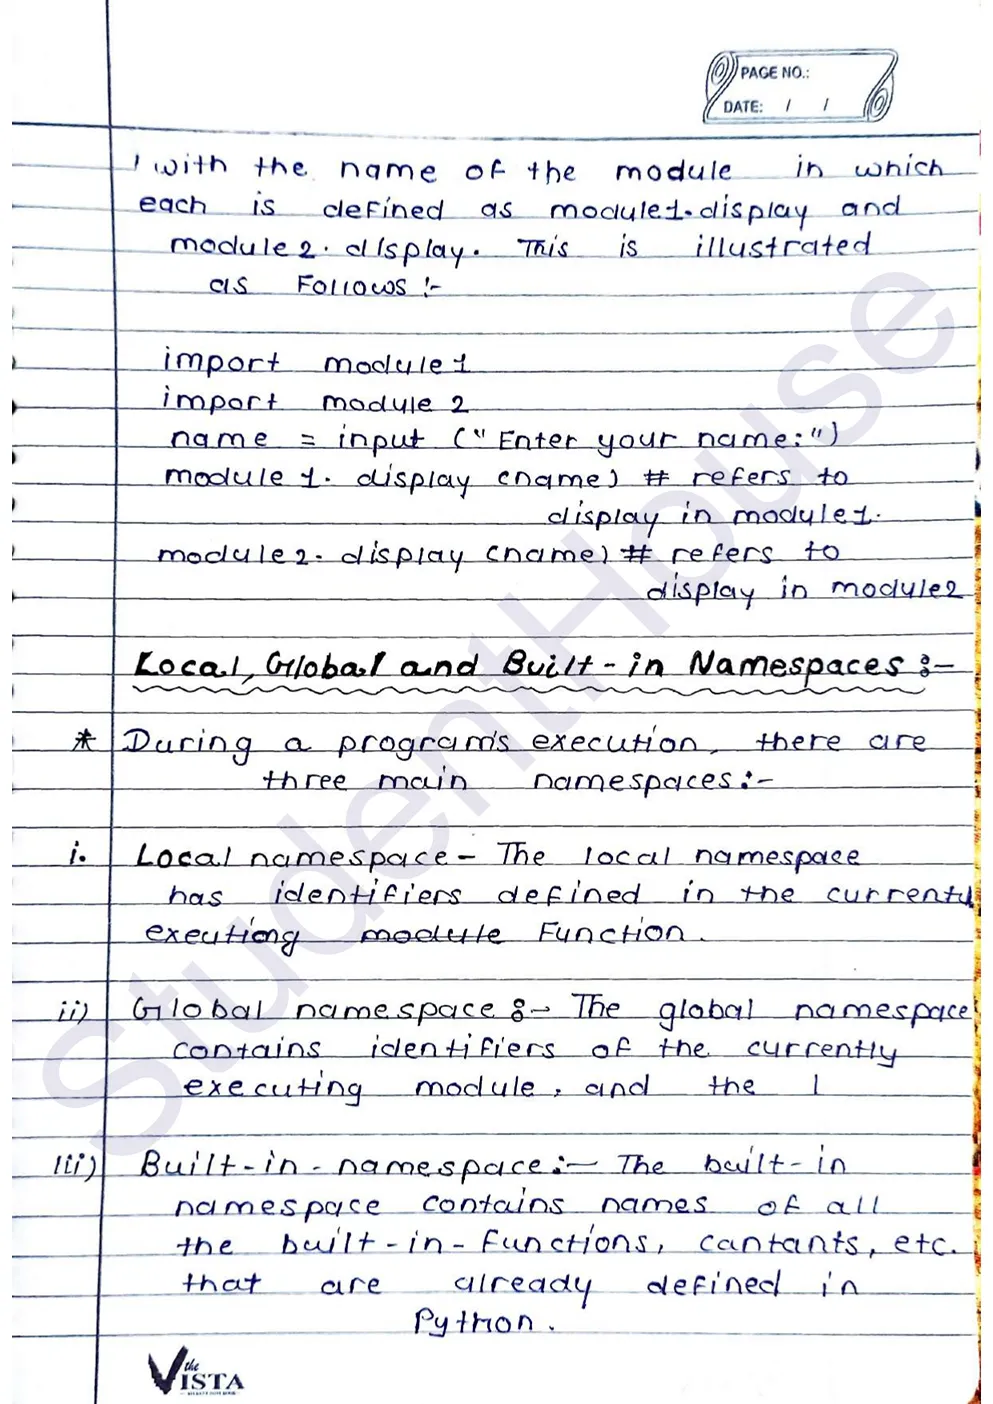 PAGE NO.:
DATE: / /
with the name of the module in which
each is defined as module1.display and
module2.display. This is illustrated
as Follows :-
import module1
import module 2
name = input ("Enter your name:")
module 1. display (name) # refers to
display in module1.
module2. display (name) # refers to
display in module2
Local, Global and Built-in Namespaces :-
* During a program's execution, there are
three main namespaces:-
i. Local namespace - The local namespace
has identifiers defined in the currently
executiong module Function.
ii) Global namespace :- The global namespace
contains identifiers of the currently
executing module, and the l
iii) Built-in-namespace :- The built-in
namespace contains names of all
the built-in-functions, cantants, etc.
that are already defined in
Python.
the
VISTA
StudentHouse